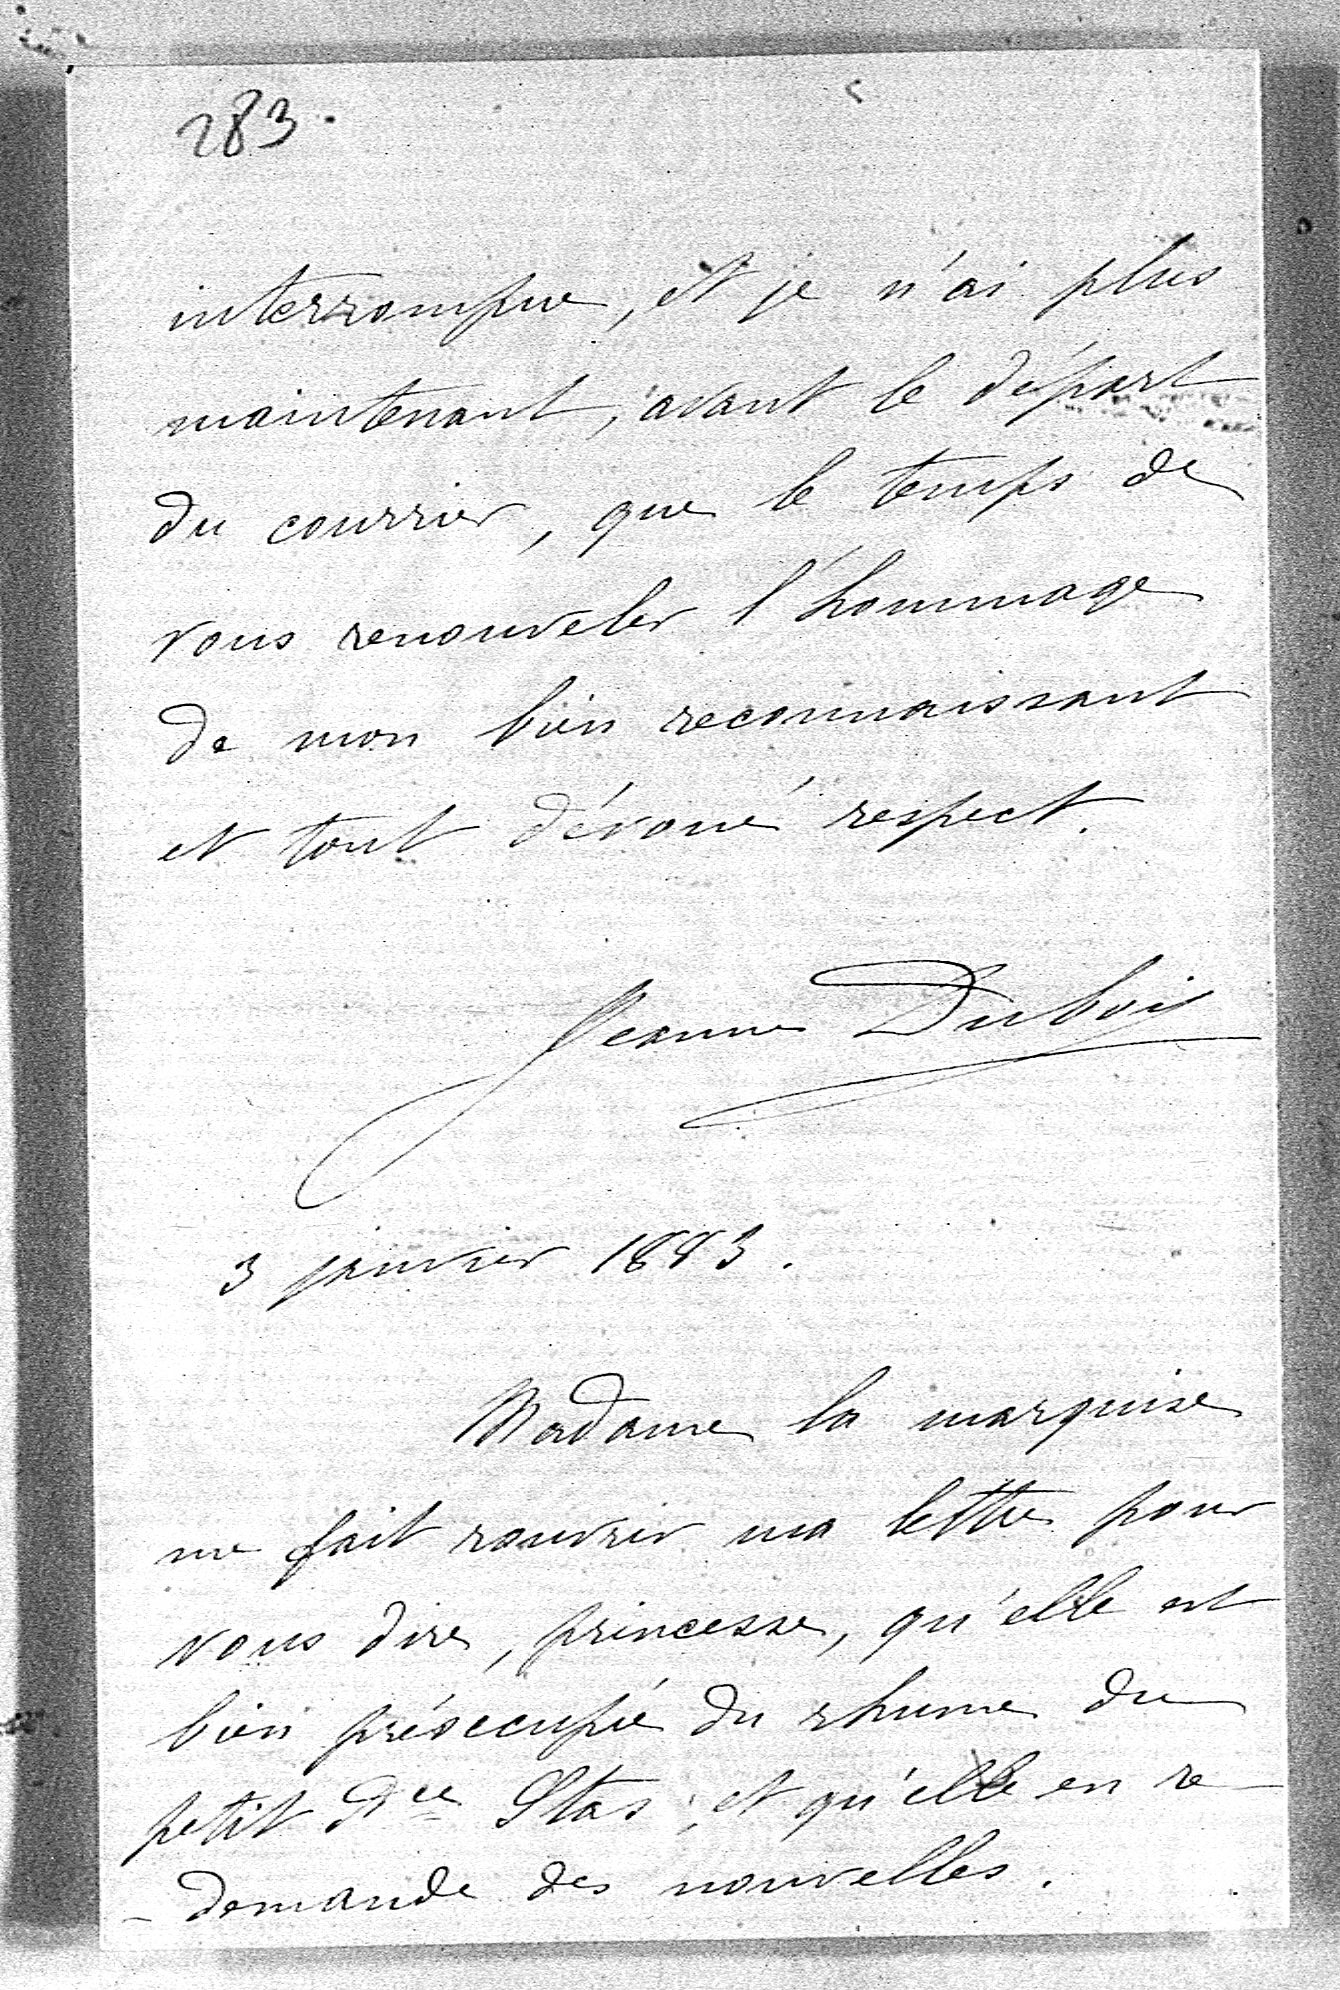 283.
interrompue, et je n'ai plus
maintenant, avant le départ
du courrier, que le temps de
vous renouveler l'hommage
de mon bien reconnaissant
et tout dévoué respect.
Jeanne Dubois
3 janvier 1883.
Madame la marquise
me fait rouvrir ma lettre pour
vous dire, princesse, qu'elle est
bien préoccupée du rhume du
petit Pce Stas; et qu'elle en re-
- demande des nouvelles.